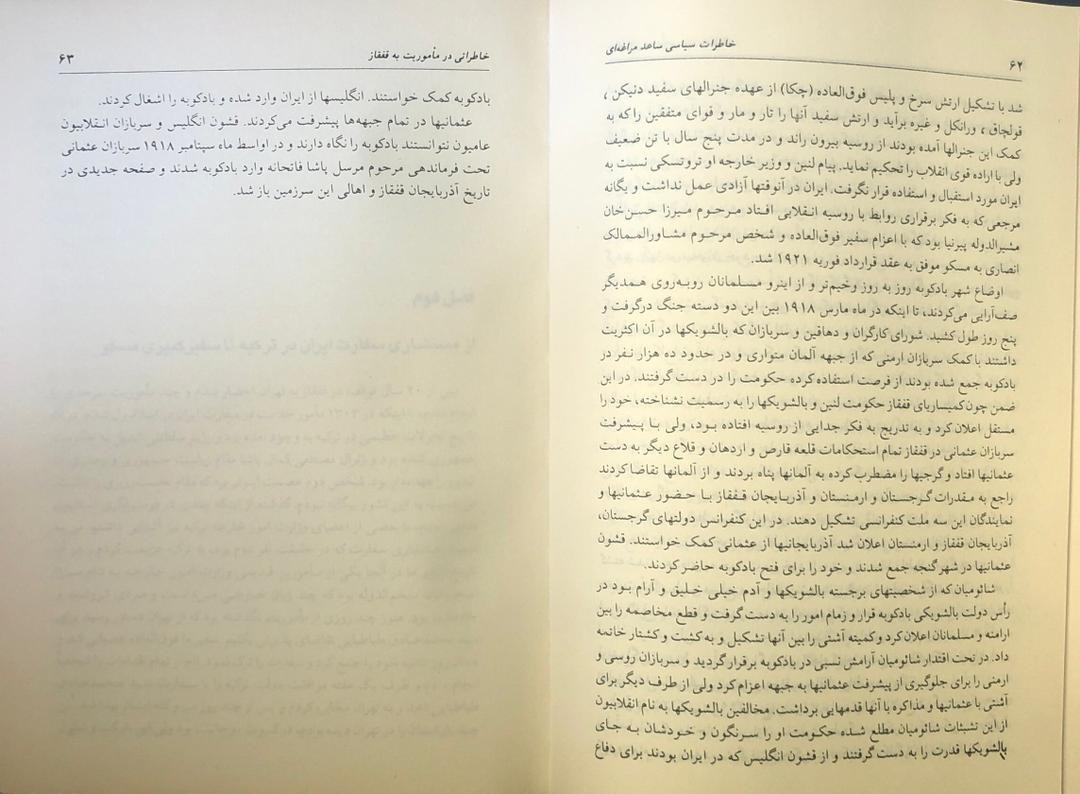 خاطرات سیاسی ساعد مراغه‌ای
۶۲
شد با تشکیل ارتش سرخ و پلیس فوق‌العاده (چکا) از عهده جنرالهای سفید دنیکن ،
قولچاق ، ورانگل و غیره برآید و ارتش سفید آنها را تار و مار و قوای متفقین را که به
کمک این جنرالها آمده بودند از روسیه بیرون راند و در مدت پنج سال با تن ضعیف
ولی با اراده قوی انقلاب را تحکیم نماید. پیام لنین و وزیر خارجه او تروتسکی نسبت به
ایران مورد استقبال و استفاده قرار نگرفت. ایران در آنوقتها آزادی عمل نداشت و یگانه
مرجعی که به فکر برقراری روابط با روسیه انقلابی افتاد مرحوم میرزا حسن‌خان
مشیرالدوله پیرنیا بود که با اعزام سفیر فوق‌العاده و شخص مرحوم مشاورالممالک
انصاری به مسکو موفق به عقد قرارداد فوریه ۱۹۲۱ شد.
اوضاع شهر بادکوبه روز به روز وخیم‌تر و از اینرو مسلمانان روبه‌روی همدیگر
صف‌آرایی می‌کردند، تا اینکه در ماه مارس ۱۹۱۸ بین این دو دسته جنگ درگرفت و
پنج روز طول کشید. شورای کارگران و دهاقین و سربازان که بالشویکها در آن اکثریت
داشتند با کمک سربازان ارمنی که از جبهه آلمان متواری و در حدود ده هزار نفر در
بادکوبه جمع شده بودند از فرصت استفاده کرده حکومت را در دست گرفتند. در این
ضمن چون کمیساریای قفقاز حکومت لنین و بالشویکها را به رسمیت نشناخته، خود را
مستقل اعلان کرد و به تدریج به فکر جدایی از روسیه افتاده بود، ولی با پیشرفت
سربازان عثمانی در قفقاز تمام استحکامات قلعه قارص و اردهان و قلاع دیگر به دست
عثمانیها افتاد و گرجیها را مضطرب کرده به آلمانها پناه بردند و از آلمانها تقاضا کردند
راجع به مقدرات گرجستان و ارمنستان و آذربایجان قفقاز با حضور عثمانیها و
نمایندگان این سه ملت کنفرانسی تشکیل دهند. در این کنفرانس دولتهای گرجستان،
آذربایجان قفقاز و ارمنستان اعلان شد آذربایجانیها از عثمانی کمک خواستند. قشون
عثمانیها در شهر گنجه جمع شدند و خود را برای فتح بادکوبه حاضر کردند.
شائومیان که از شخصیتهای برجسته بالشویکها و آدم خیلی خلیق و آرام بود در
رأس دولت بالشویکی بادکوبه قرار و زمام امور را به دست گرفت و قطع مخاصمه را بین
ارامنه و مسلمانان اعلان کرد و کمیته آشتی را بین آنها تشکیل و به کشت و کشتار خاتمه
داد. در تحت اقتدار شائومیان آرامش نسبی در بادکوبه برقرار گردید و سربازان روسی و
ارمنی را برای جلوگیری از پیشرفت عثمانیها به جبهه اعزام کرد ولی از طرف دیگر برای
آشتی با عثمانیها و مذاکره با آنها قدمهایی برداشت. مخالفین بالشویکها به نام انقلابیون
از این تشبثات شائومیان مطلع شده حکومت او را سرنگون و خودشان به جای
بالشویکها قدرت را به دست گرفتند و از قشون انگلیس که در ایران بودند برای دفاع
خاطراتی در مأموریت به قفقاز
۶۳
بادکوبه کمک خواستند. انگلیسها از ایران وارد شده و بادکوبه را اشغال کردند.
عثمانیها در تمام جبهه‌ها پیشرفت می‌کردند. قشون انگلیس و سربازان انقلابیون
عامیون نتوانستند بادکوبه را نگاه دارند و در اواسط ماه سپتامبر ۱۹۱۸ سربازان عثمانی
تحت فرماندهی مرحوم مرسل پاشا فاتحانه وارد بادکوبه شدند و صفحه جدیدی در
تاریخ آذربایجان قفقاز و اهالی این سرزمین باز شد.